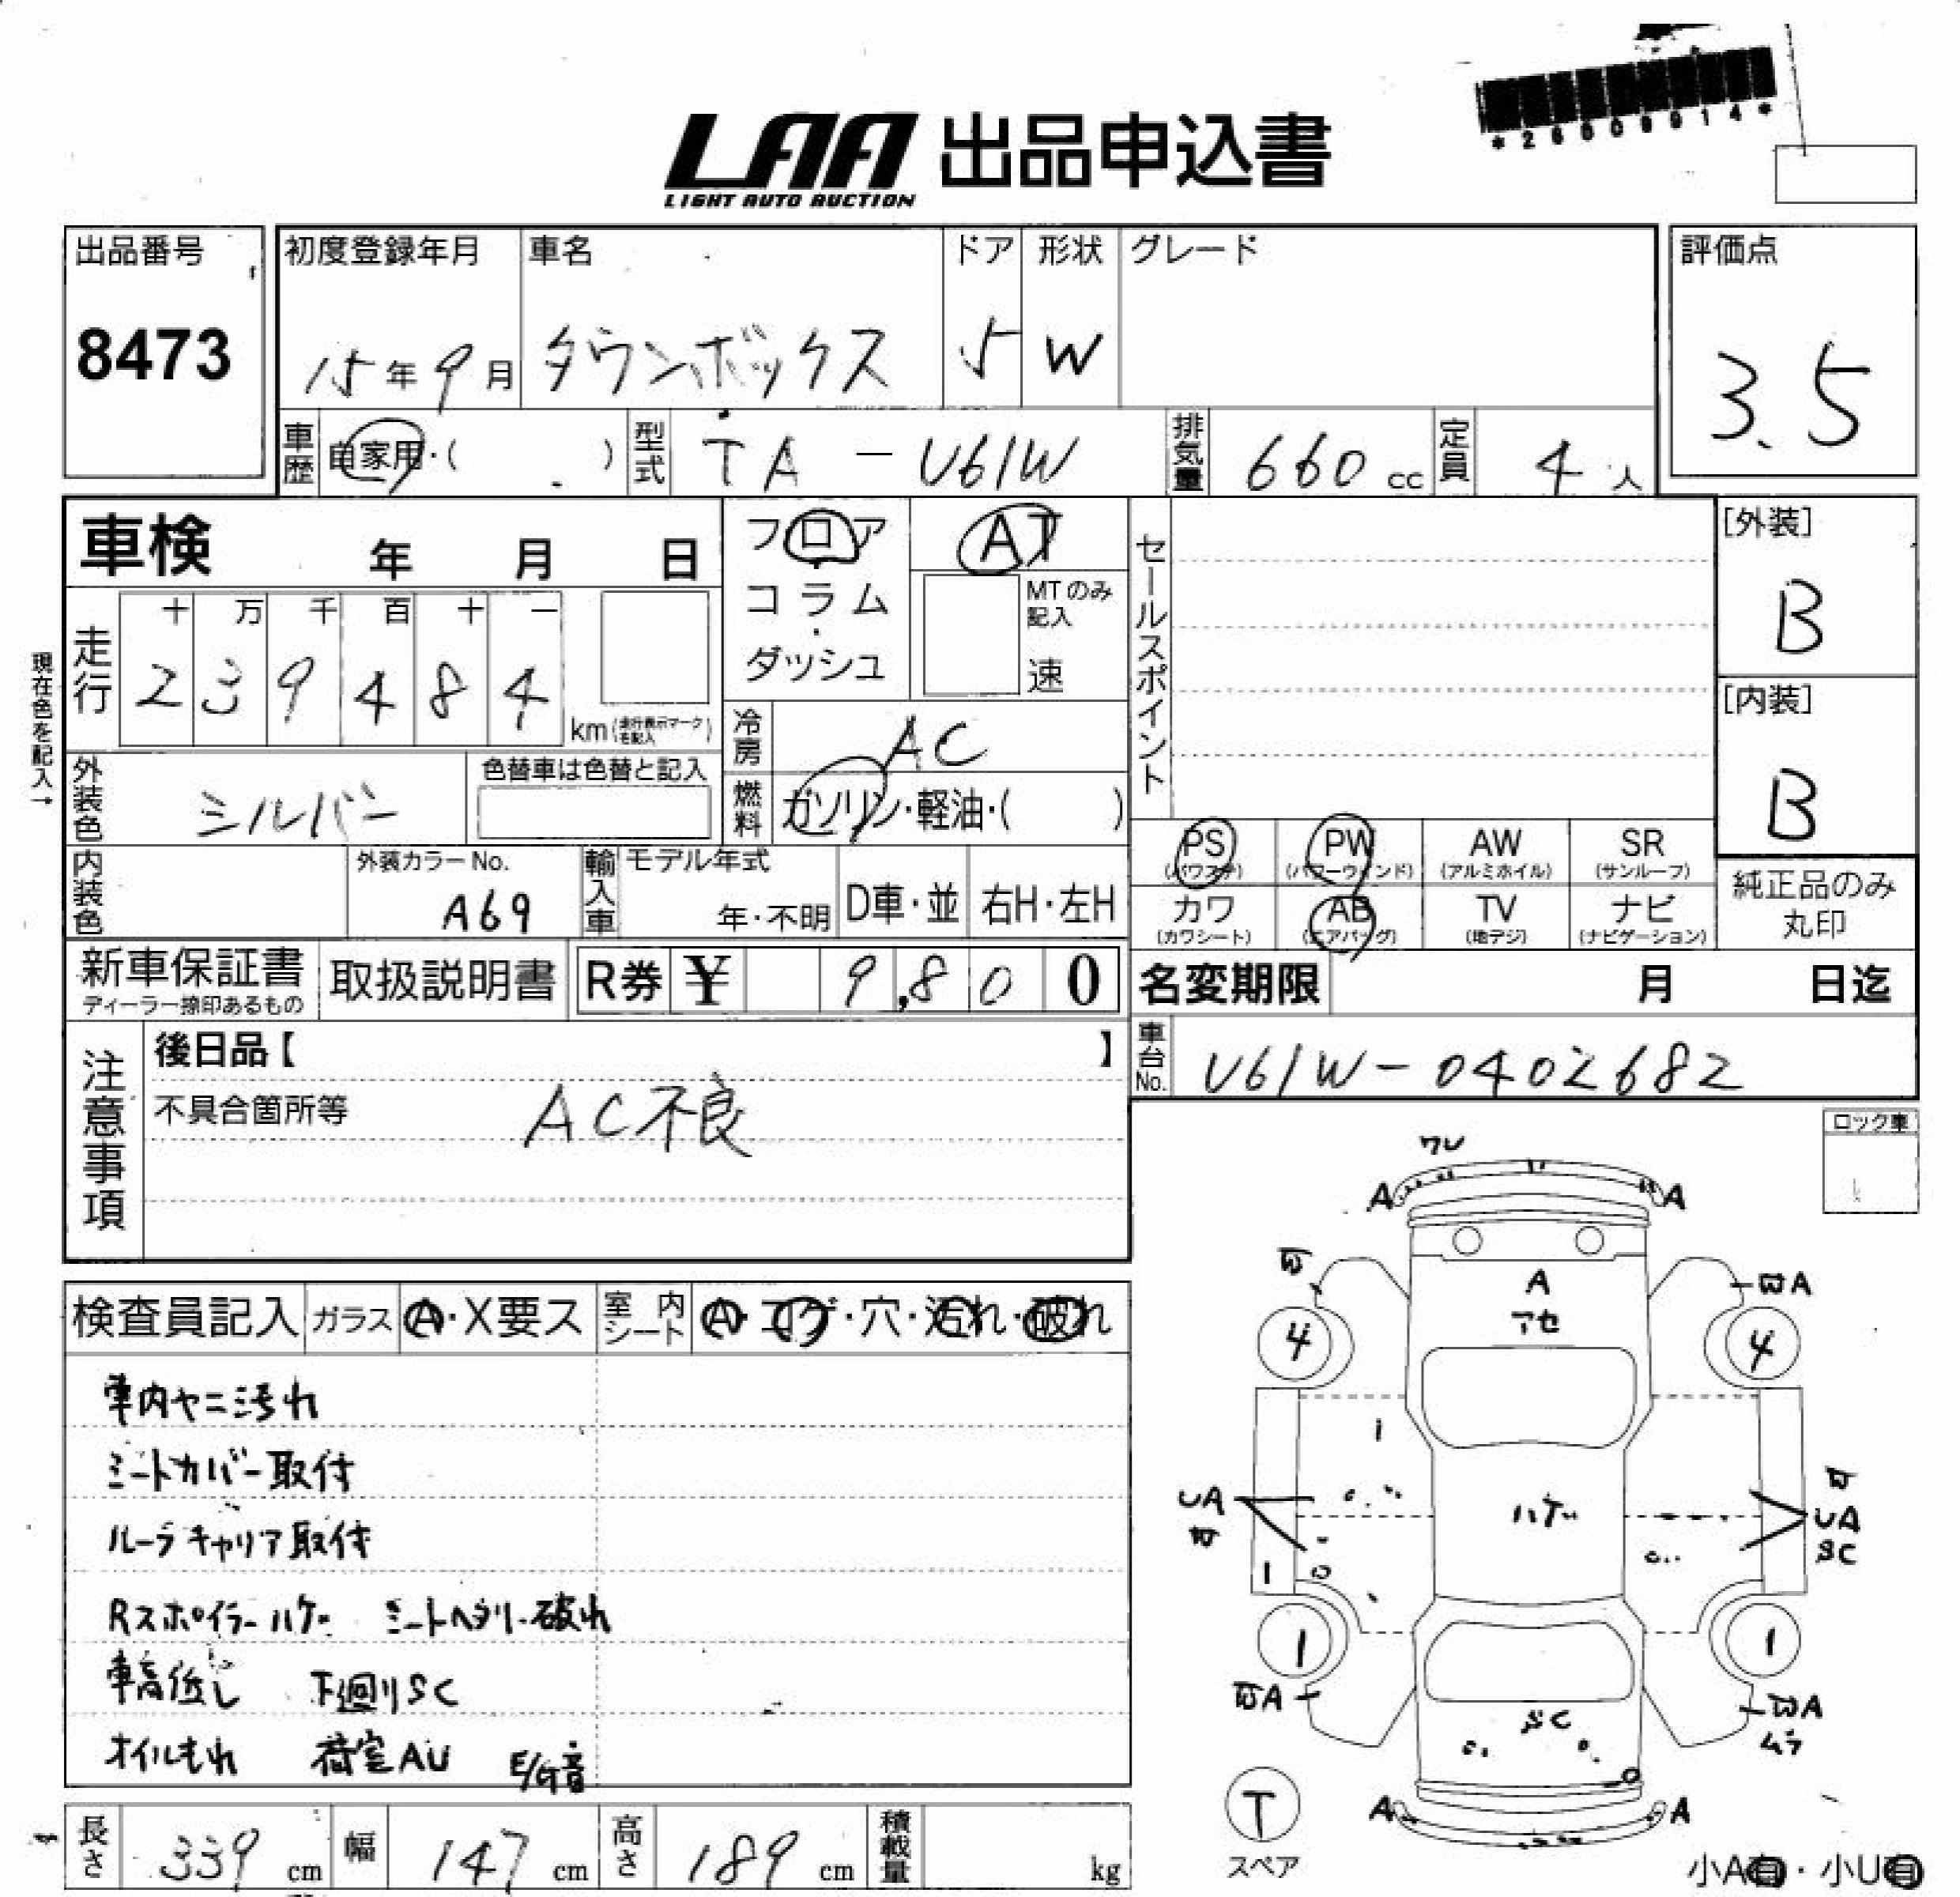 *26009014*
LAA 出品申込書
LIGHT AUTO AUCTION
出品番号
8473
初度登録年月
15年9月
車名
タウンボックス
ドア
5
形状
W
グレード
評価点
3.5
車歴
自家用・( )
型式
TA-U61W
排気量
660cc
定員
4人
車検 年 月 日
フロア
コラム
ダッシュ
AT
MTのみ
記入
速
セールスポイント
[外装]
B
[内装]
B
現在色を記入→
走行
十 万 千 百 十 一
2 3 9 4 8 4
km(走行表示マークを記入)
冷房
AC
外装色
シルバー
色替車は色替と記入
燃料
ガソリン・軽油・( )
PS
(パワステ)
PW
(パワーウインド)
AW
(アルミホイル)
SR
(サンルーフ)
カワ
(カワシート)
AB
(エアバッグ)
TV
(地デジ)
ナビ
(ナビゲーション)
純正品のみ
丸印
内装色
外装カラーNo.
A69
輸入車
モデル年式
年・不明
D車・並
右H・左H
新車保証書
ディーラー捺印あるもの
取扱説明書
R券 ¥ 9,800
名変期限 月 日迄
注意事項
後日品【 】
不具合箇所等
AC不良
車台No.
U61W-0402682
ロック車
検査員記入
ガラス
A・X要ス
室内シート
A・コゲ・穴・汚れ・破れ
車内ヤニ汚れ
シートカバー取付
ルーフキャリア取付
Rスポイラーハゲ シートヘタリ・破れ
車高低し 下廻りSC
オイルもれ 荷室AU E/G音
ワレ
A A
A
アセ
A
4 4
UA
ハゲ
UA
SC
1
1 1
A
A
SC
A A
T
スペア
小A有・小U有
長さ
339cm
幅
147cm
高さ
189cm
積載量
kg